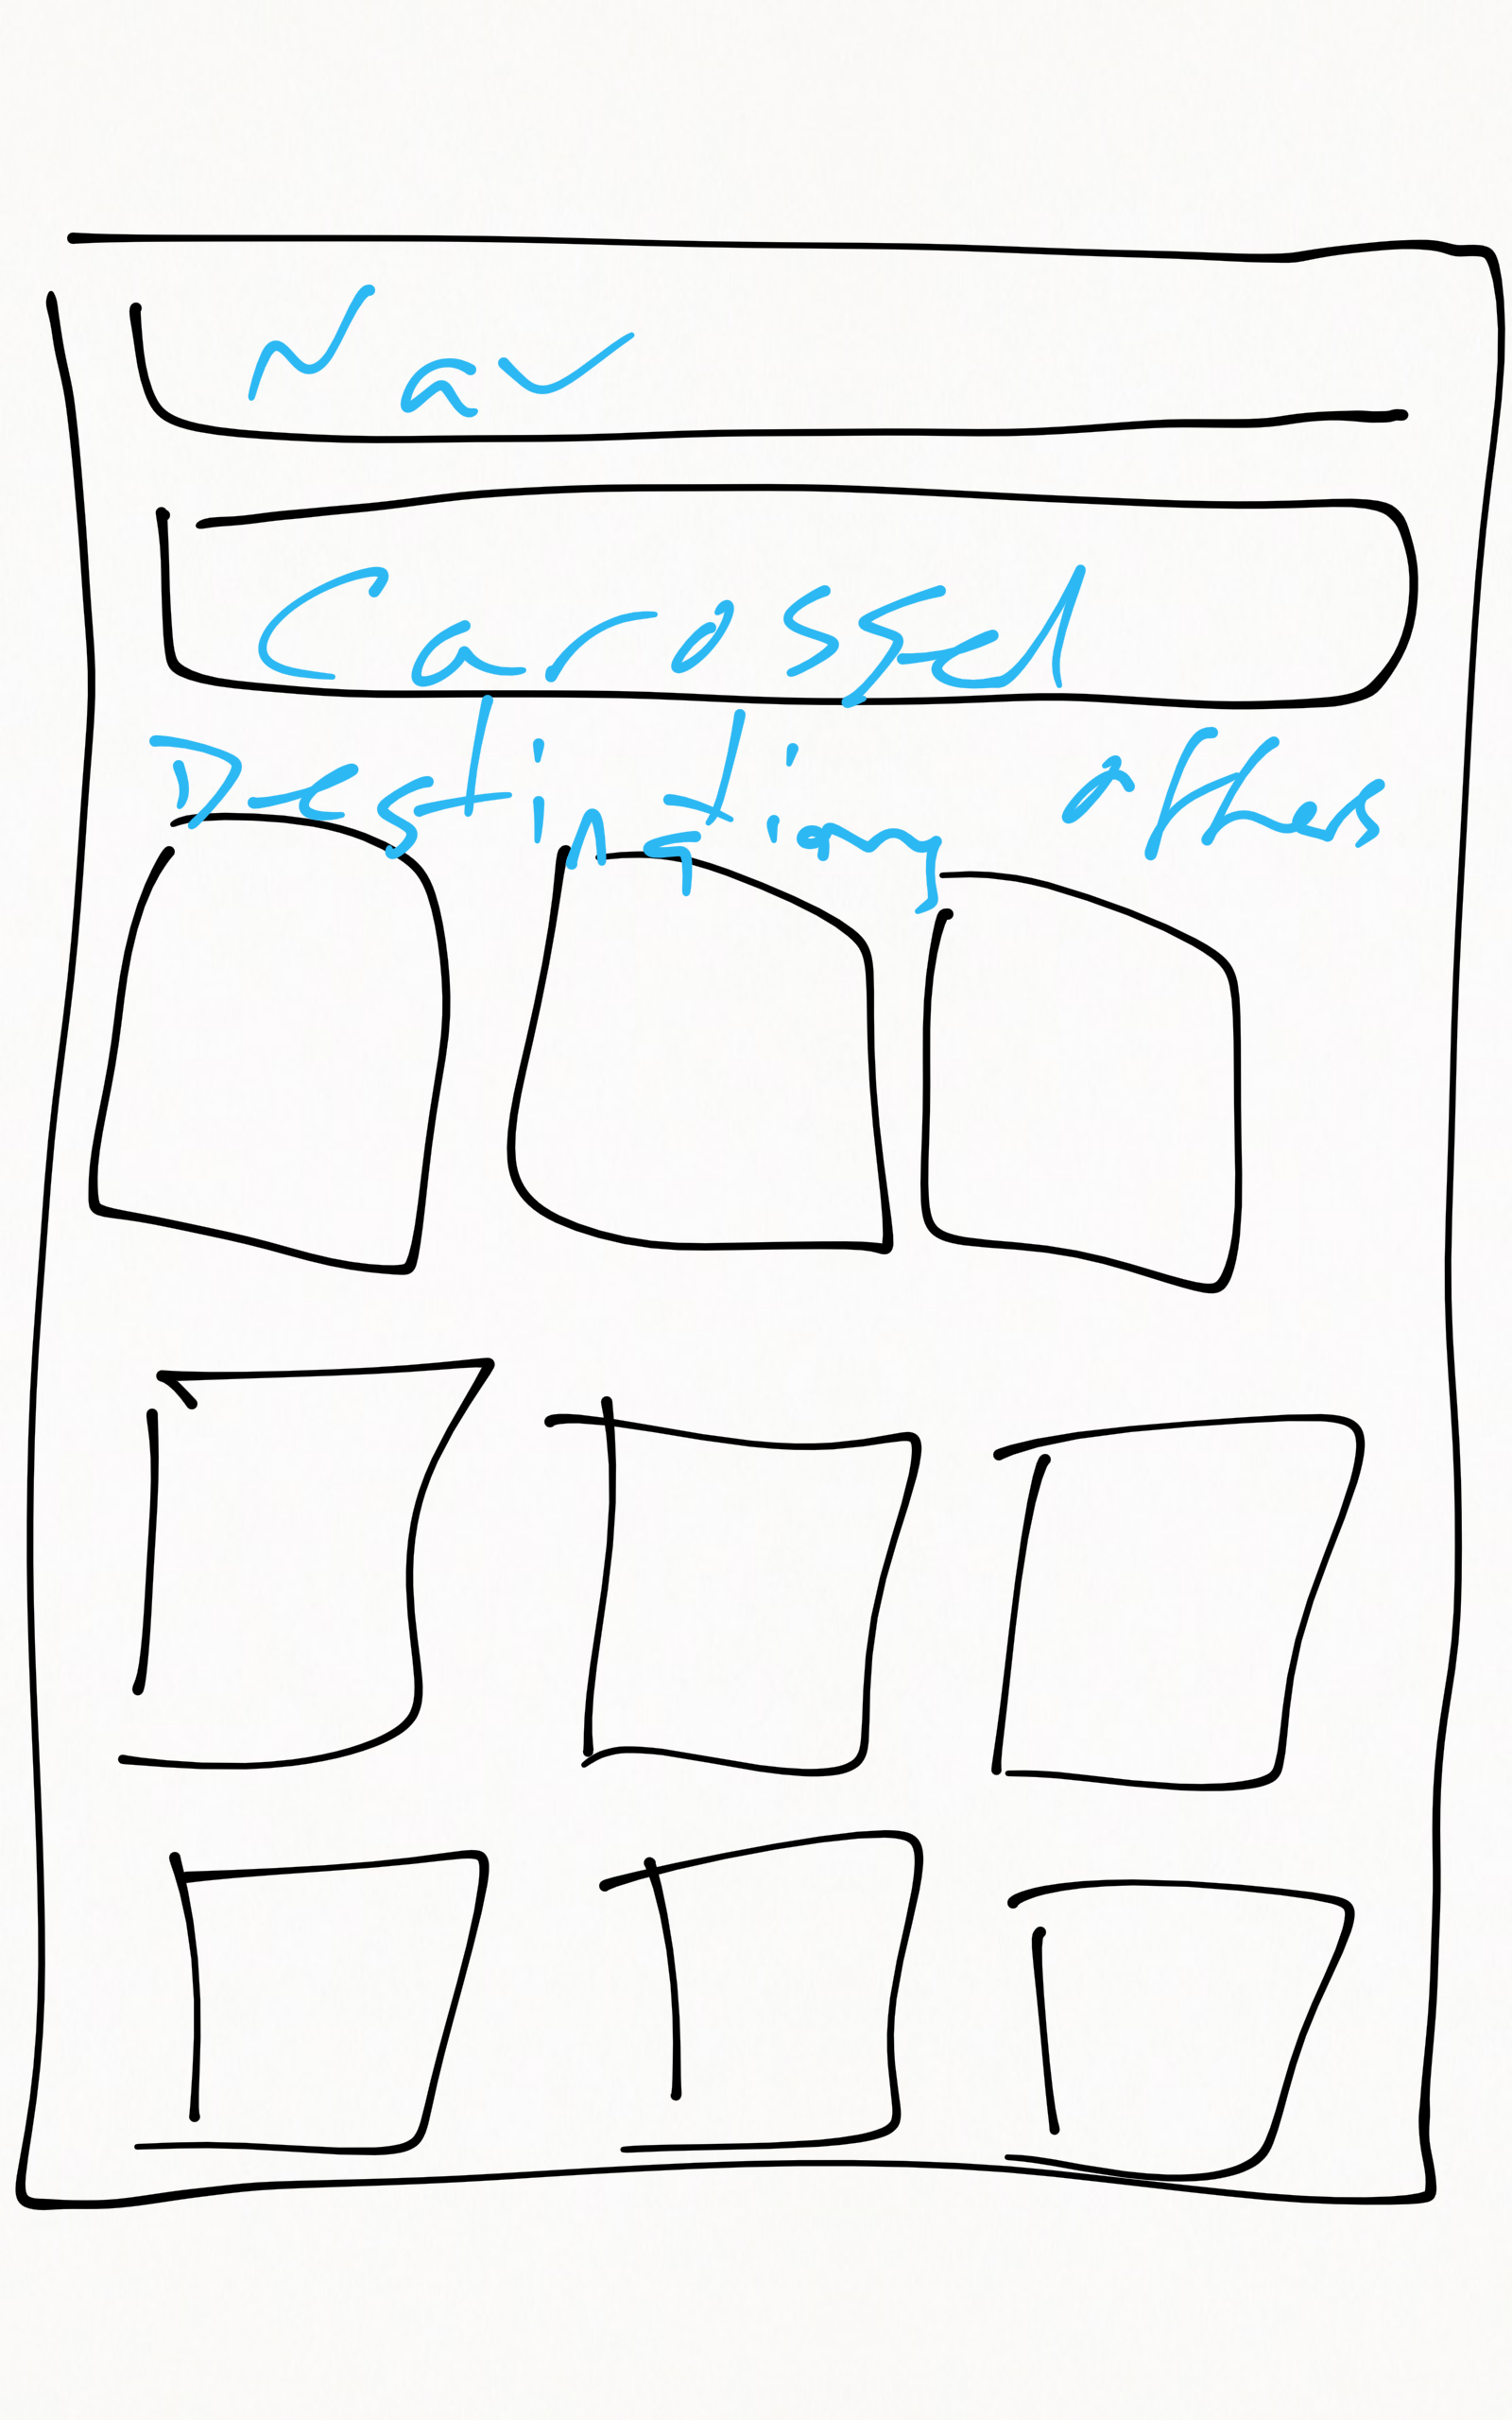 Nav
Carossel
Destinations offers